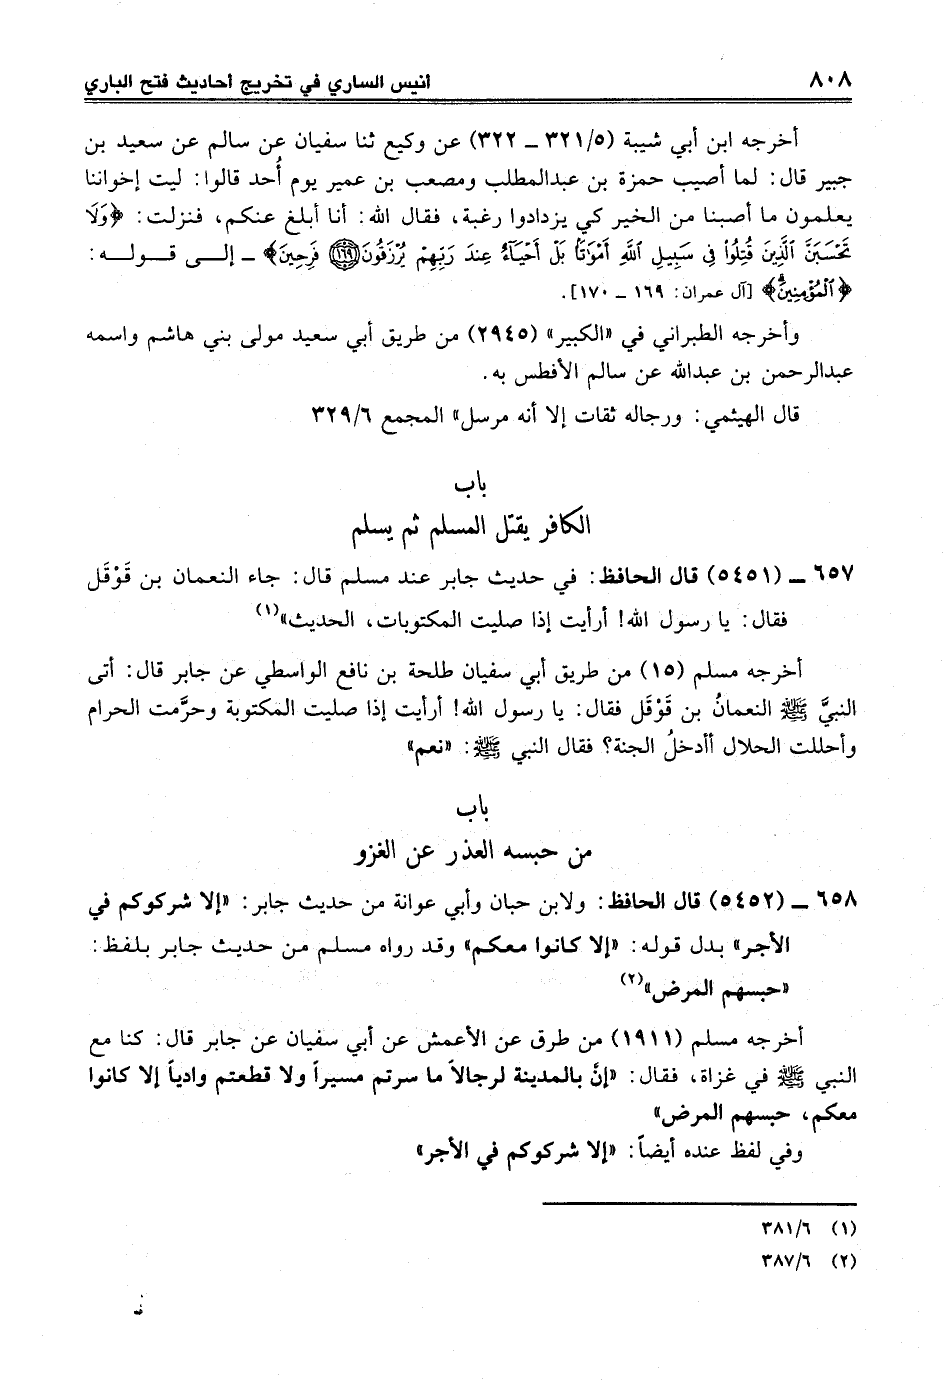 ٨٠٨ أنيس الساري في تخريج أحاديث فتح الباري
أخرجه ابن أبي شيبة (٣٢١/٥ ـ ٣٢٢) عن وكيع ثنا سفيان عن سالم عن سعيد بن
جبير قال: لما أصيب حمزة بن عبدالمطلب ومصعب بن عمير يوم أُحد قالوا: ليت إخواننا
يعلمون ما أصبنا من الخير كي يزدادوا رغبة، فقال الله: أنا أبلغ عنكم، فنزلت: ﴿وَلَا
تَحْسَبَنَّ ٱلَّذِينَ قُتِلُوا۟ فِى سَبِيلِ ٱللَّهِ أَمْوَٰتًۢا بَلْ أَحْيَآءٌ عِندَ رَبِّهِمْ يُرْزَقُونَ ﴿١٦٩﴾ فَرِحِينَ﴾ ـ إلـى قـولـه:
﴿ٱلْمُؤْمِنِينَ﴾ [آل عمران: ١٦٩ ـ ١٧٠].
وأخرجه الطبراني في «الكبير» (٢٩٤٥) من طريق أبي سعيد مولى بني هاشم واسمه
عبدالرحمن بن عبدالله عن سالم الأفطس به.
قال الهيثمي: ورجاله ثقات إلا أنه مرسل» المجمع ٣٢٩/٦
باب
الكافر يقتل المسلم ثم يسلم
٦٥٧ ـ (٥٤٥١) قال الحافظ: في حديث جابر عند مسلم قال: جاء النعمان بن قَوْقَل
فقال: يا رسول الله! أرأيت إذا صليت المكتوبات، الحديث»(١)
أخرجه مسلم (١٥) من طريق أبي سفيان طلحة بن نافع الواسطي عن جابر قال: أتى
النبيَّ ﷺ النعمانُ بن قَوْقَل فقال: يا رسول الله! أرأيت إذا صليت المكتوبة وحرَّمت الحرام
وأحللت الحلال أأدخلُ الجنة؟ فقال النبي ﷺ: «نعم»
باب
من حبسه العذر عن الغزو
٦٥٨ ـ (٥٤٥٢) قال الحافظ: ولابن حبان وأبي عوانة من حديث جابر: «إلا شركوكم في
الأجر» بدل قوله: «إلا كانوا معكم» وقد رواه مسلم من حديث جابر بلفظ:
«حبسهم المرض»(٢)
أخرجه مسلم (١٩١١) من طرق عن الأعمش عن أبي سفيان عن جابر قال: كنا مع
النبي ﷺ في غزاة، فقال: «إنَّ بالمدينة لرجالاً ما سرتم مسيراً ولا قطعتم وادياً إلا كانوا
معكم، حبسهم المرض»
وفي لفظ عنده أيضاً: «إلا شركوكم في الأجر»
(١) ٣٨١/٦
(٢) ٣٨٧/٦